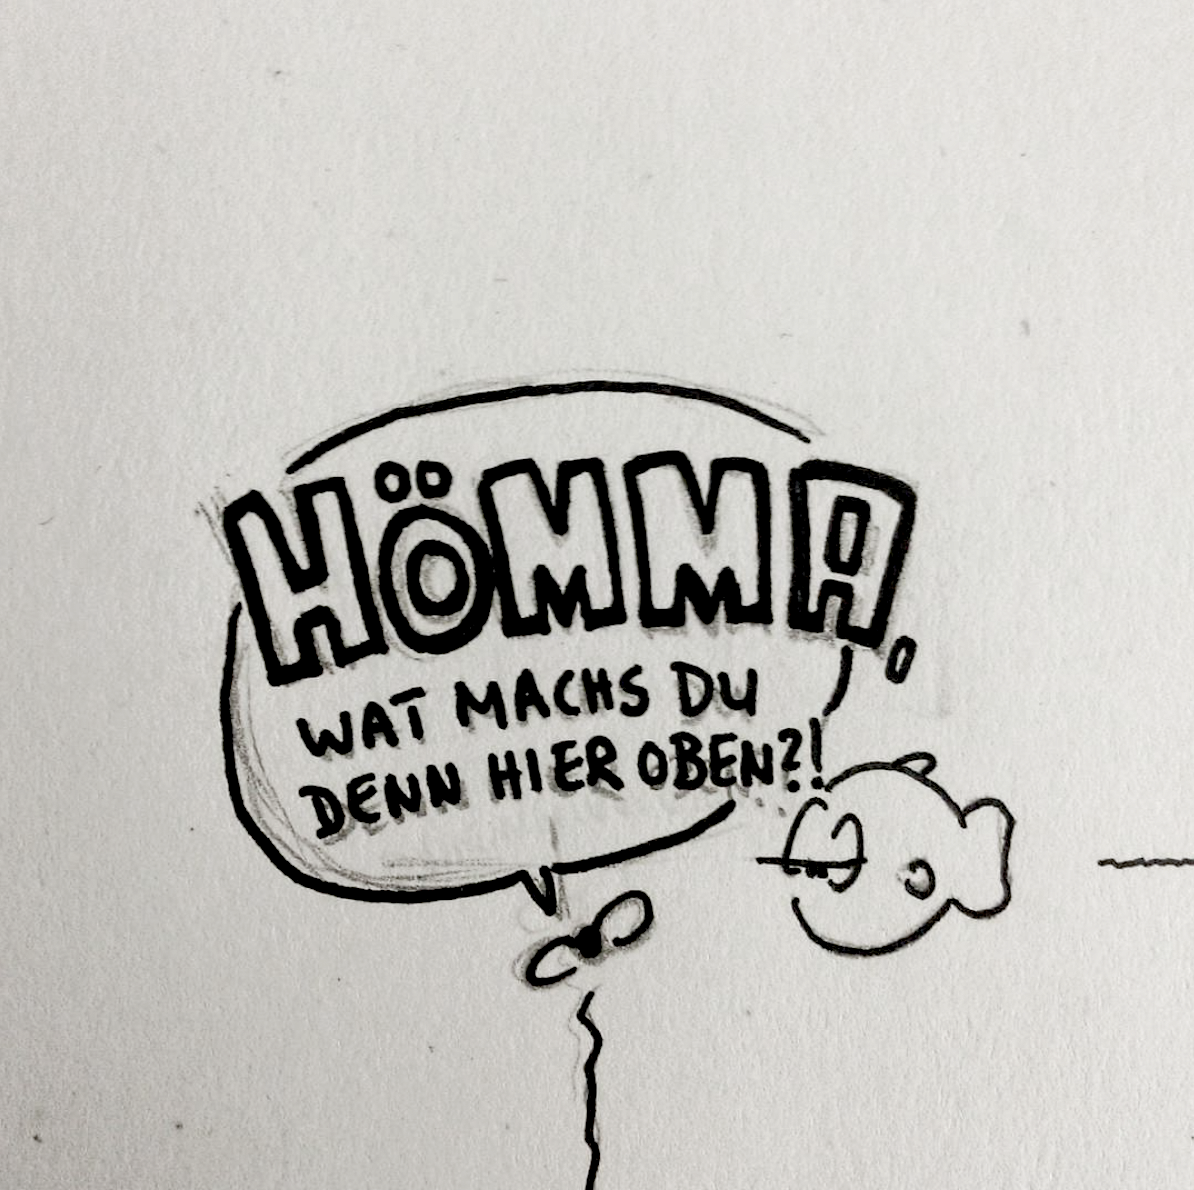 HÖMMA,
WAT MACHS DU
DENN HIER OBEN?!